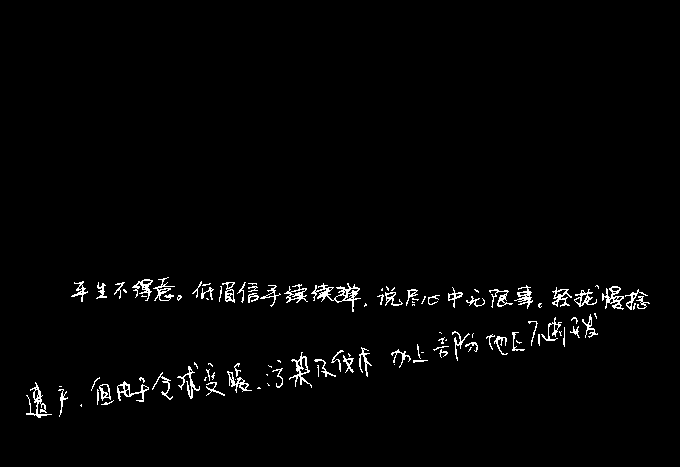 平生不得意。低眉信手续续弹，说尽心中无限事。轻拢慢捻
遗产，但由于全球变暖、污染及伐木加上部份地区不断开发